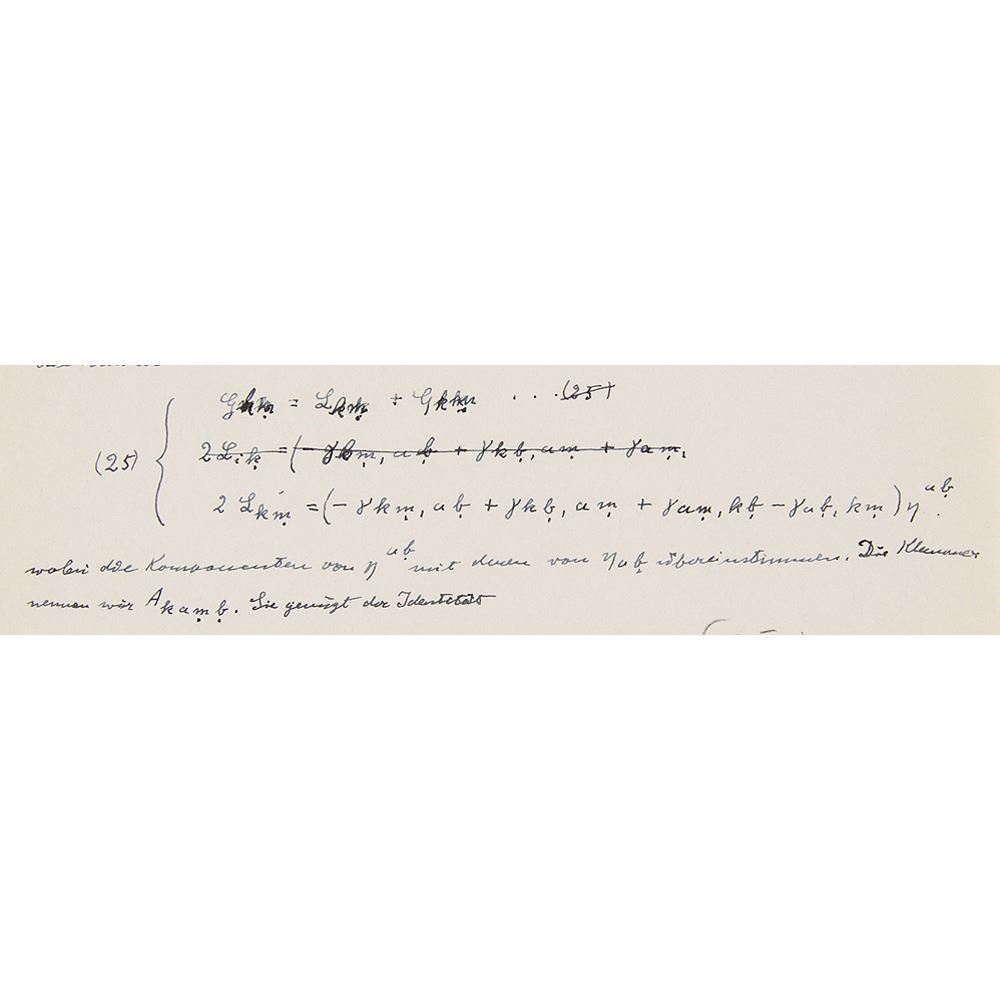 G_{km̤} = L_{km̤} + G_{kkm̤} . . . (25)
(25) { 2 L_{iḳ} = (- γ_{km̤}, aḅ + γ_{kḅ}, am̤ + γ_{am̤},
2 L_{km̤} = (- γ_{km̤}, aḅ + γ_{kḅ}, am̤ + γ_{am̤}, kḅ - γ_{aḅ}, km̤) η^{aḅ}.
wobei die Komponenten von η^{aḅ} mit denen von η_{aḅ} übereinstimmen. Die Klammer
nennen wir A_{kam̤ḅ}. Sie genügt der Identität